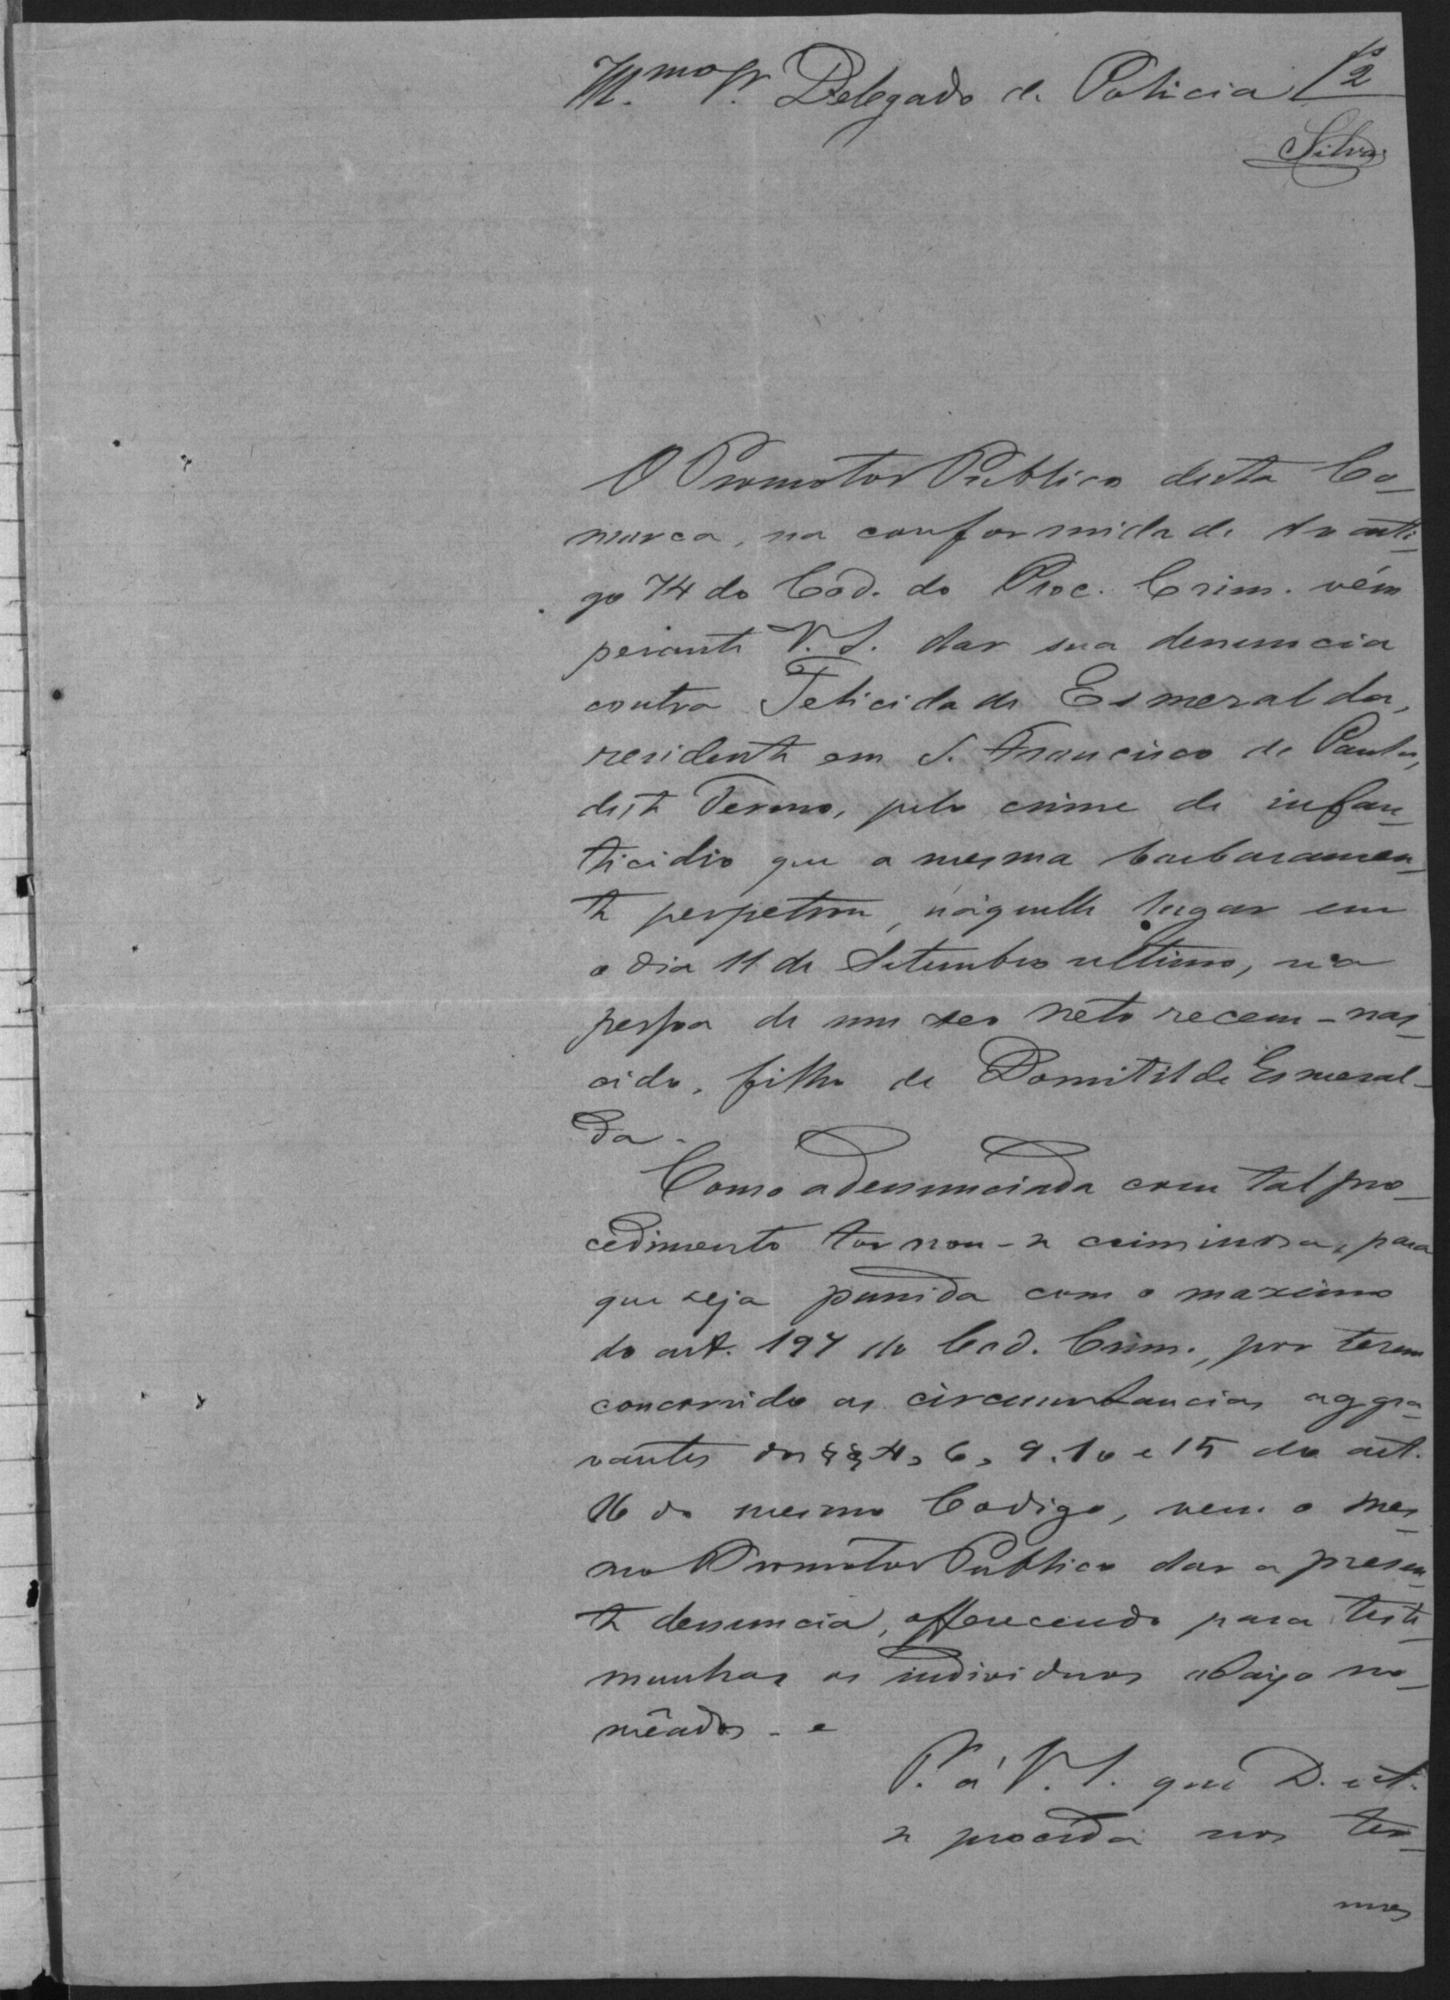 Illmo Sr. Delegado de Policia fs 2
Silva
O Promotor Publico desta Co-
marca, na conformidade do arti-
go 74 do Cod. do Proc. Crim. vém
perante V. S. dar sua denuncia
contra Felicidade Esmeralda,
residente em S. Francisco de Paula,
deste Termo, pelo crime de infan-
ticidio que a mesma barbaramen-
te perpetrou, n'aquelle lugar em
o dia 11 de Setembro ultimo, na
pessoa de um seo neto recem-nas-
cido, filho de Domitilde Esmeral-
da.
Como a denunciada com tal pro-
cedimento tornou-se criminosa, para
que seja punida com o maximo
do art. 197 do Cod. Crim., por terem
concorrido as circumstancias aggra-
vantes dos §§ 4, 6, 9, 10 e 15 do art.
16 do mesmo Codigo, vem o mes-
mo Promotor Publico dar a presen-
te denuncia, offerecendo para teste-
munhas os individuos abaixo no-
mêados - e
P. á V. S. que D. e A.
se proceda nos ter-
mos